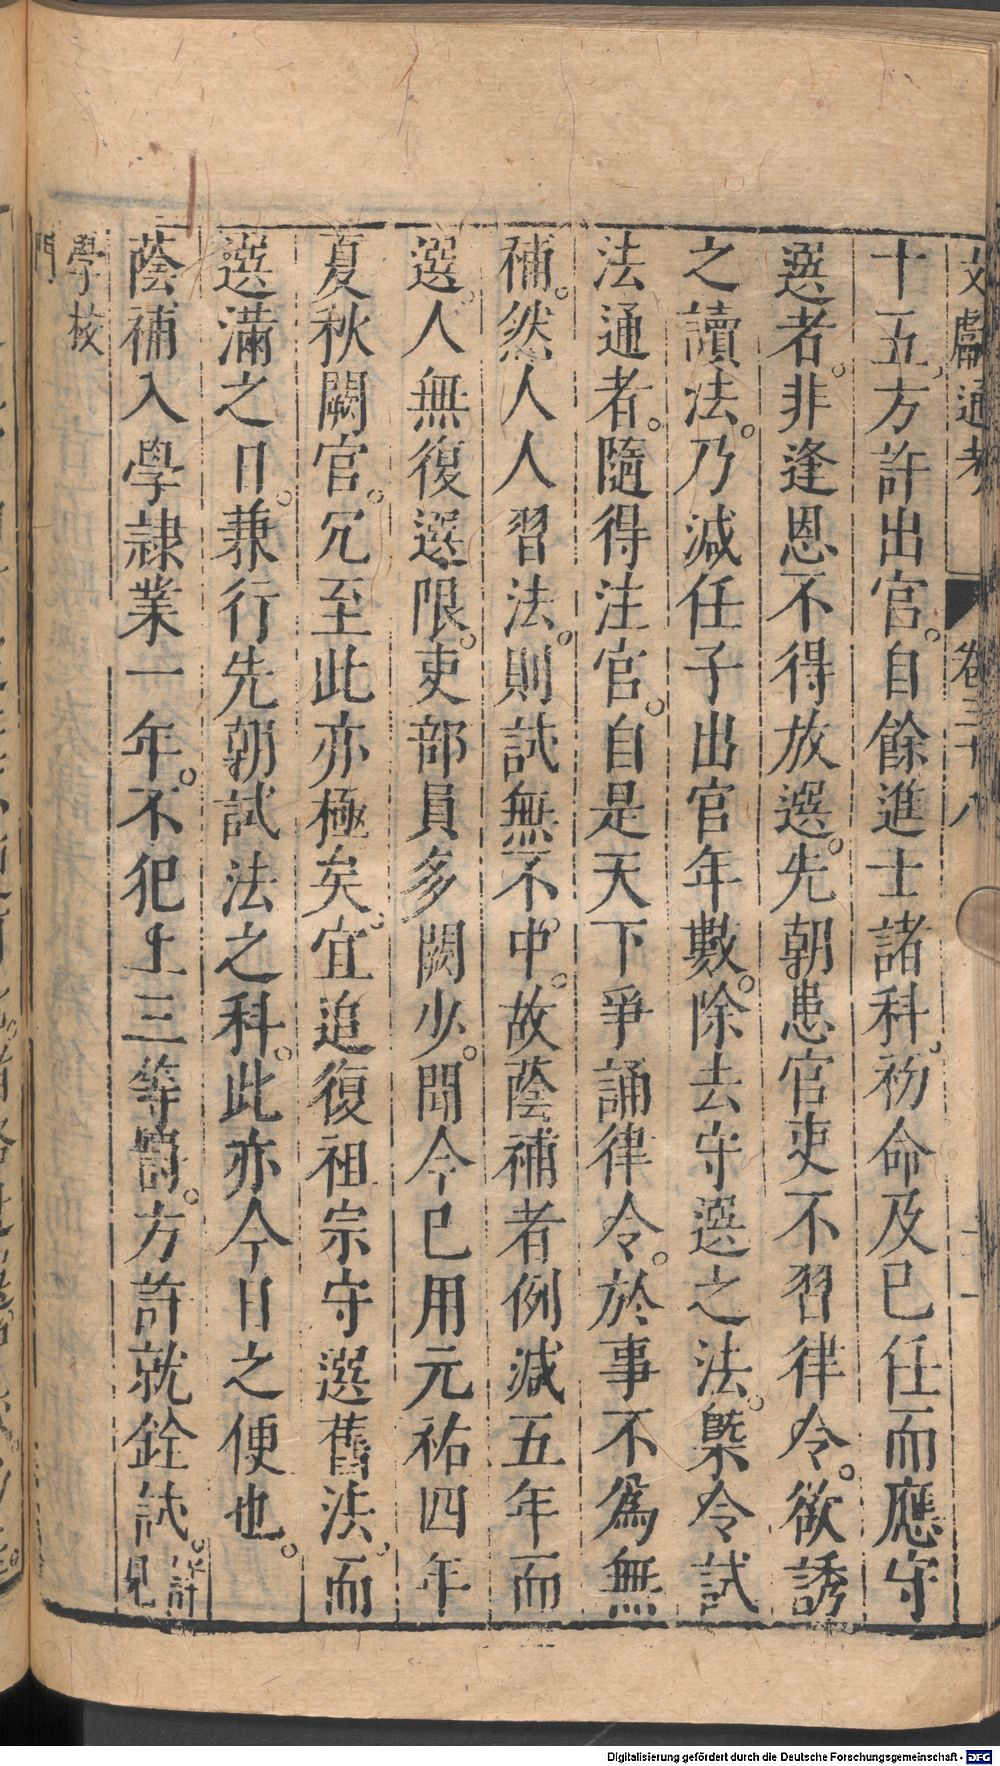 文獻通考　卷三十八
十五方許出官。自餘進士諸科。初命及已任而應守
選者。非逢恩不得放選。先朝患官吏不習律令。欲誘
之讀法。乃減任子出官年數。除去守選之法。槩令試
法通者。隨得注官。自是天下爭誦律令。於事不爲無
補。然人人習法。則試無不中。故蔭補者例減五年而
選人無復選限。吏部員多闕少。聞今已用元祐四年
夏秋闕官。冗至此亦極矣。宜追復祖宗守選舊法。而
選滿之日。兼行先朝試法之科。此亦今日之便也。
蔭補入學隸業一年。不犯上三等罰。方許就銓試。詳見
學校
門
Digitalisierung gefördert durch die Deutsche Forschungsgemeinschaft - DFG